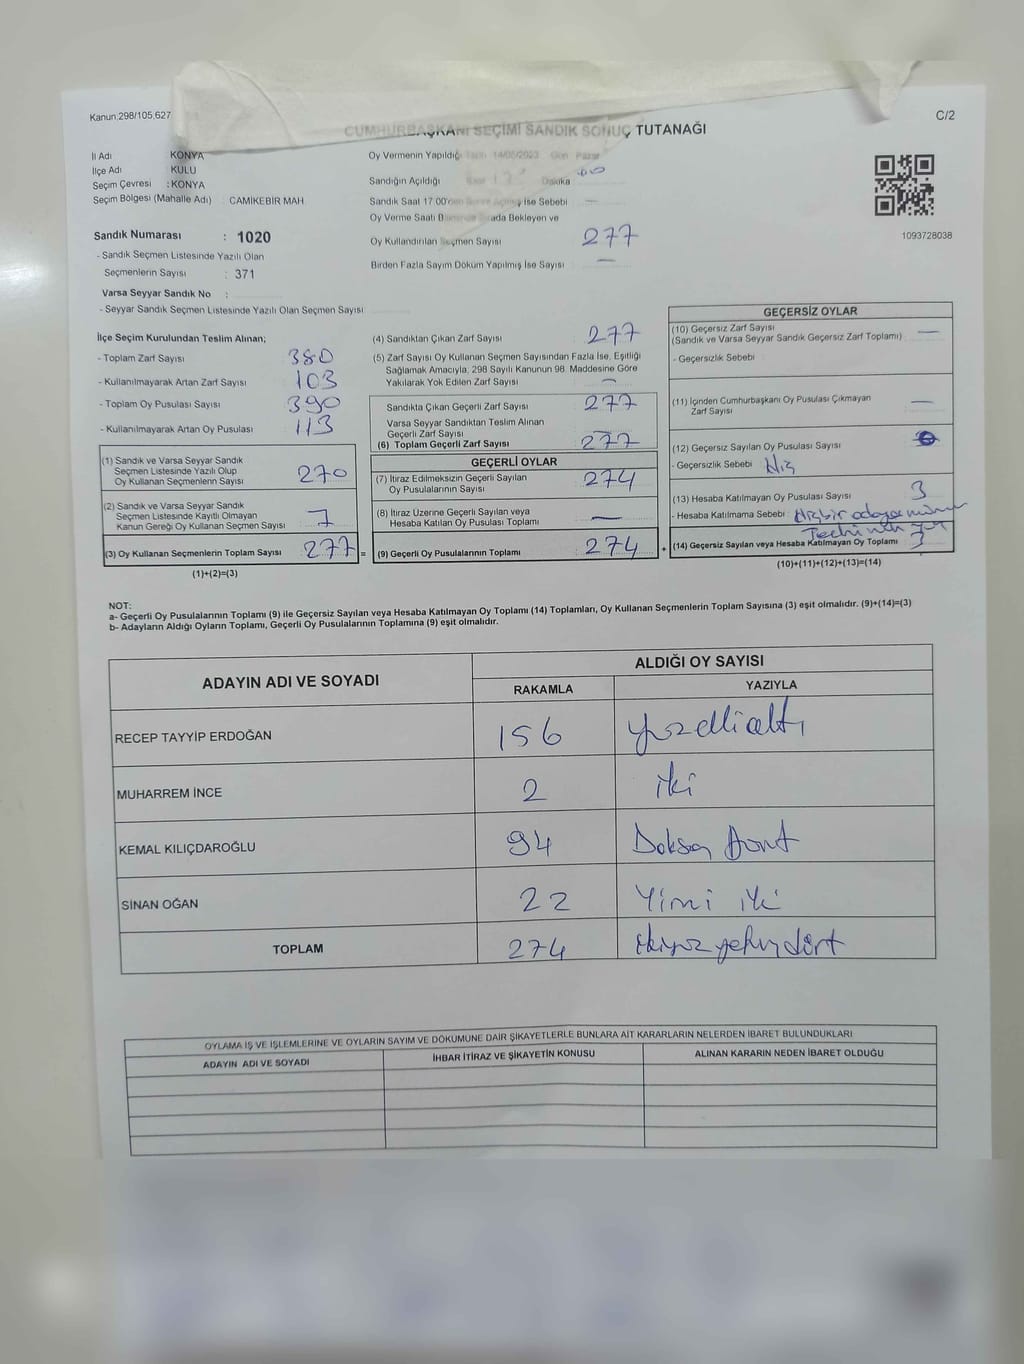 Kanun:298/105,627
C/2
CUMHURBAŞKANI SEÇİMİ SANDIK SONUÇ TUTANAĞI
İl Adı KONYA
İlçe Adı KULU
Seçim Çevresi : KONYA
Seçim Bölgesi (Mahalle Adı) CAMİKEBİR MAH.
Oy Vermenin Yapıldığı Tarih 14/05/2023 Gün Pazar
Sandığın Açıldığı Saat 17 Dakika 00
Sandık Saat 17:00'den Ise Sebebi —
Oy Verme Saati Sırada Bekleyen ve
Oy Kullandırılan Seçmen Sayısı 277
Birden Fazla Sayım Döküm Yapılmış İse Sayısı —
1093728038
Sandık Numarası : 1020
- Sandık Seçmen Listesinde Yazılı Olan
Seçmenlerin Sayısı : 371
Varsa Seyyar Sandık No :
- Seyyar Sandık Seçmen Listesinde Yazılı Olan Seçmen Sayısı
İlçe Seçim Kurulundan Teslim Alınan;
- Toplam Zarf Sayısı 380
- Kullanılmayarak Artan Zarf Sayısı 103
- Toplam Oy Pusulası Sayısı 390
- Kullanılmayarak Artan Oy Pusulası 113
(1) Sandık ve Varsa Seyyar Sandık
Seçmen Listesinde Yazılı Olup
Oy Kullanan Seçmenlerin Sayısı 270
(2) Sandık ve Varsa Seyyar Sandık
Seçmen Listesinde Kayıtlı Olmayan
Kanun Gereği Oy Kullanan Seçmen Sayısı 7
(3) Oy Kullanan Seçmenlerin Toplam Sayısı 277 =
(1)+(2)=(3)
(4) Sandıktan Çıkan Zarf Sayısı 277
(5) Zarf Sayısı Oy Kullanan Seçmen Sayısından Fazla İse, Eşitliği
Sağlamak Amacıyla, 298 Sayılı Kanunun 98. Maddesine Göre
Yakılarak Yok Edilen Zarf Sayısı —
Sandıkta Çıkan Geçerli Zarf Sayısı 277
Varsa Seyyar Sandıktan Teslim Alınan
Geçerli Zarf Sayısı
(6) Toplam Geçerli Zarf Sayısı 277
GEÇERLİ OYLAR
(7) İtiraz Edilmeksizin Geçerli Sayılan
Oy Pusulalarının Sayısı 274
(8) İtiraz Üzerine Geçerli Sayılan veya
Hesaba Katılan Oy Pusulası Toplamı —
(9) Geçerli Oy Pusulalarının Toplamı 274 +
GEÇERSİZ OYLAR
(10) Geçersiz Zarf Sayısı —
(Sandık ve Varsa Seyyar Sandık Geçersiz Zarf Toplamı)
- Geçersizlik Sebebi
(11) İçinden Cumhurbaşkanı Oy Pusulası Çıkmayan
Zarf Sayısı —
(12) Geçersiz Sayılan Oy Pusulası Sayısı
- Geçersizlik Sebebi Hiç
(13) Hesaba Katılmayan Oy Pusulası Sayısı 3
- Hesaba Katılmama Sebebi Hiçbir adaya mühür
(14) Geçersiz Sayılan veya Hesaba Katılmayan Oy Toplamı 3
(10)+(11)+(12)+(13)=(14)
NOT:
a- Geçerli Oy Pusulalarının Toplamı (9) ile Geçersiz Sayılan veya Hesaba Katılmayan Oy Toplamı (14) Toplamları, Oy Kullanan Seçmenlerin Toplam Sayısına (3) eşit olmalıdır. (9)+(14)=(3)
b- Adayların Aldığı Oyların Toplamı, Geçerli Oy Pusulalarının Toplamına (9) eşit olmalıdır.
ADAYIN ADI VE SOYADI ALDIĞI OY SAYISI
RAKAMLA YAZIYLA
RECEP TAYYİP ERDOĞAN 156 yüzellialtı
MUHARREM İNCE 2 iki
KEMAL KILIÇDAROĞLU 94 Doksan dört
SİNAN OĞAN 22 Yirmi iki
TOPLAM 274 ikiyüzyetmişdört
OYLAMA İŞ VE İŞLEMLERİNE VE OYLARIN SAYIM VE DÖKÜMÜNE DAİR ŞİKAYETLERLE BUNLARA AİT KARARLARIN NELERDEN İBARET BULUNDUKLARI
ADAYIN ADI VE SOYADI İHBAR İTİRAZ VE ŞİKAYETİN KONUSU ALINAN KARARIN NEDEN İBARET OLDUĞU